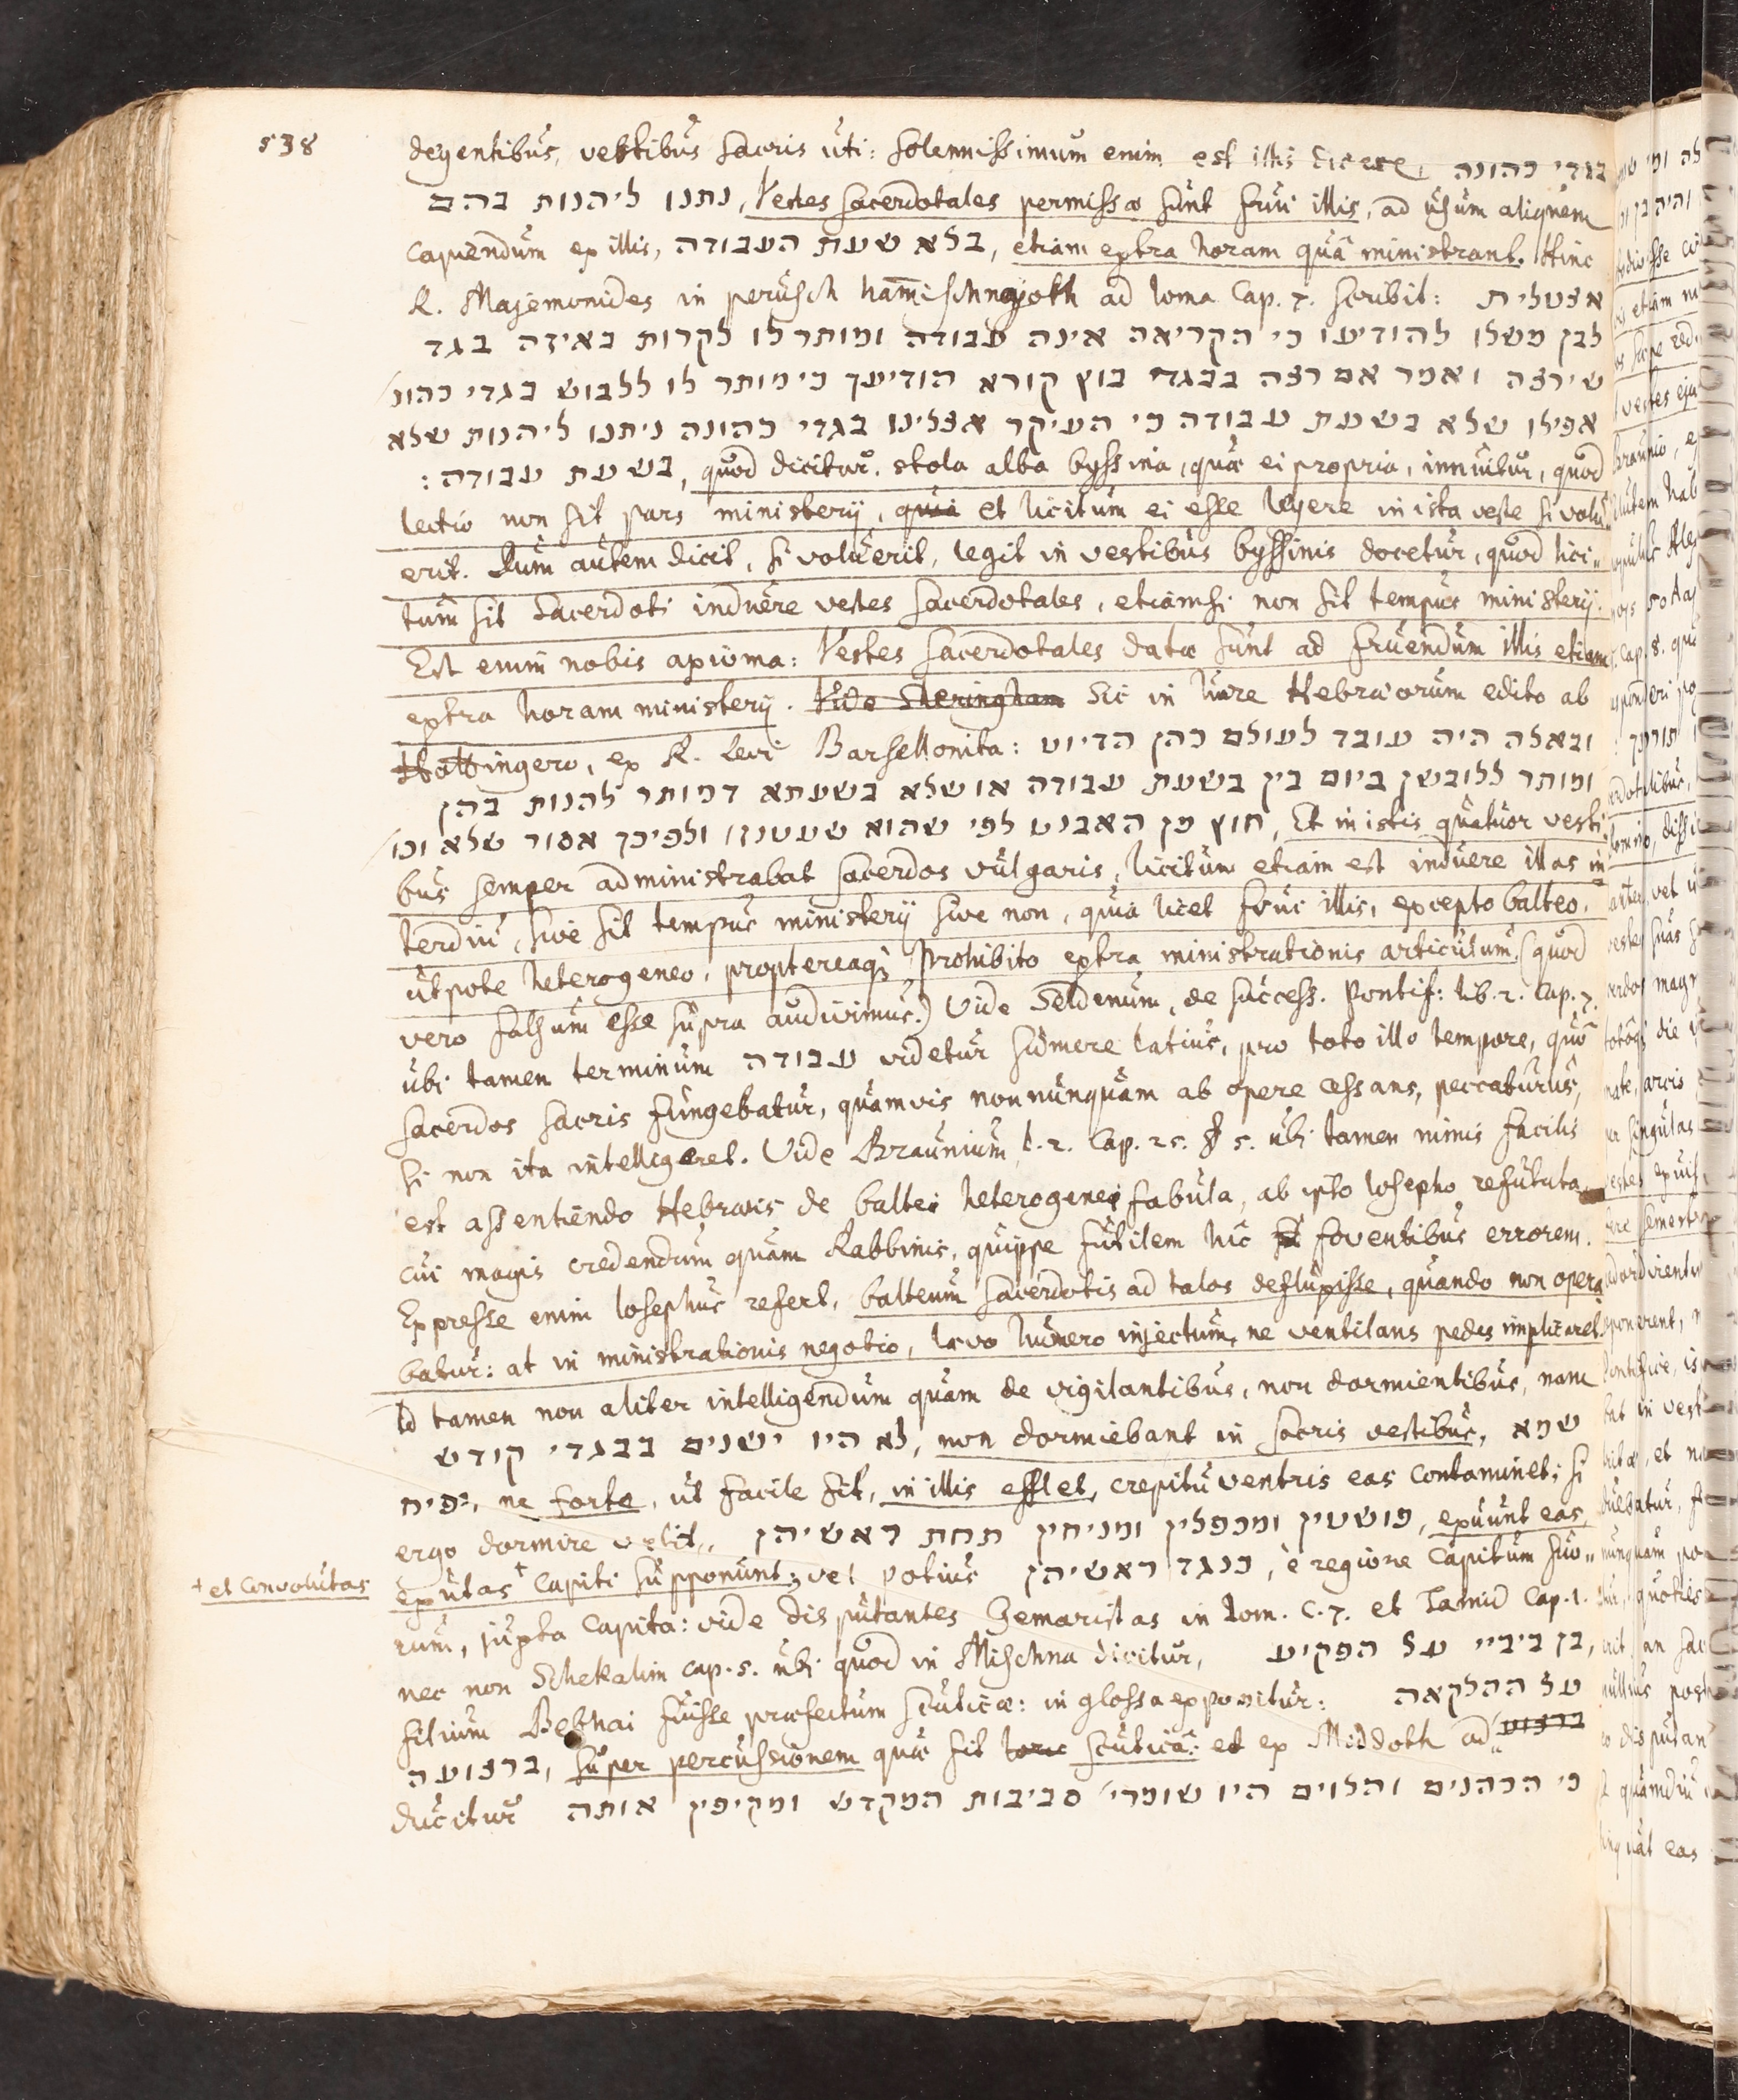 538
degentibus, vestibus sacris uti: solemnissimum enim est illis dicere, בגדי כהונה
נתנו ליהנות בהם, Vestes sacerdotales permissæ sunt frui illis, ad usum aliquem
capiendum ex illis, בלא שעת העבודה, etiam extra horam quâ ministrant. Hinc
R. Majemonides in perusch hammischnajoth ad Ioma Cap. 7. scribit: אצטלית
לבן משלו להודיעו כי הקריאה אינה עבודה ומותר לו לקרות באיזה בגד
שירצה ואמר אם רצה בבגדי בוץ קורא הודיעך כי מותר לו ללבוש בגדי כהונ/
אפילו שלא בשעת עבודה כי העיקר אצלינו בגדי כהונה ניתנו ליהנות שלא
בשעת עבודה:, quod dicitur. stola alba byssina, quæ ei propria, innuitur, quod
lectio non sit pars ministerij, quia et licitum ei esse legere in ista veste si volu
erit. Dum autem dicit, si voluerit, legit in vestibus byssinis docetur, quod lici„
tum sit Sacerdoti induere vestes sacerdotales, etiamsi non sit tempus ministerij.
Est enim nobis axioma: Vestes sacerdotales datæ sunt ad fruendum illis etiam
extra horam ministerij. Vide Sheringham Sic in Iure Hebræorum edito ab
Hottingero, ex R. Levi Barsellonita: ובאלה היה עובד לעולם כהן הדיוט
ומותר ללובשן ביום בין בשעת עבודה או שלא בשעתא דמותר להנות בהן
חוץ מן האבנט לפי שהוא שעטנז ולפיכך אסור שלא וכו/, Et in istis quatuor vesti
bus semper administrabat sacerdos vulgaris, licitum etiam est induere illas in
terdiu, sive sit tempus ministerij sive non, quia licet frui illis, excepto balteo,
utpote heterogeneo, propterea㕠prohibito extra ministrationis articulum, (quod
vero falsum esse supra audivimus.) Vide Seldenum, de success. Pontif: lib. 2. Cap. 7.
ubi tamen terminum עבודה videtur sumere latius, pro toto illo tempore, quô
sacerdos sacris fungebatur, quamvis nonnunquam ab opere cessans, peccaturus,
si non ita intelligeret. Vide Braunium l. 2. Cap. 25. § 5. ubi tamen nimis facilis
est assentiendo Hebræis de baltei heterogenei fabula, ab ipso Iosepho refutata
cui magis credendum quam Rabbinis, quippe futilem hic foventibus errorem.
Expresse enim Iosephus refert, balteum sacerdotis ad talos defluxisse, quando non opera
batur: at in ministrationis negotio, lævo humero injectum, ne ventilans pedes implicaret.
Id tamen non aliter intelligendum quam de vigilantibus, non dormientibus, nam
לא היו ישנים בבגדי קודש, non dormiebant in sacris vestibus, שמא
יפיח, ne forte, ut facile fit, in illis efflet, crepitu ventris eas contaminet; si
ergo dormire velit, פושטין ומכפלין ומניחין תחת ראשיהן, exuunt eas,
exutas + capiti supponunt; vel potius כנגד ראשיהן, è regione capitum suo„
+ et convolutas
rum, juxta Capita: vide disputantes Gemaristas in Iom. C. 7. et Tamid Cap. 1.
nec non Schekalim cap. 5. ubi quod in Mischna dicitur, בן ביביי על הפקיע,
filium Bebhai fuisse præfectum scuticæ: in glossa exponitur: על ההלקאה
ברצועה, super percussionem quæ fit scuticâ: et ex Middoth ad„ ברצוע
ducitur כי הכהנים והלוים היו שומרי/ סביבות המקדש ומקיפין אותה